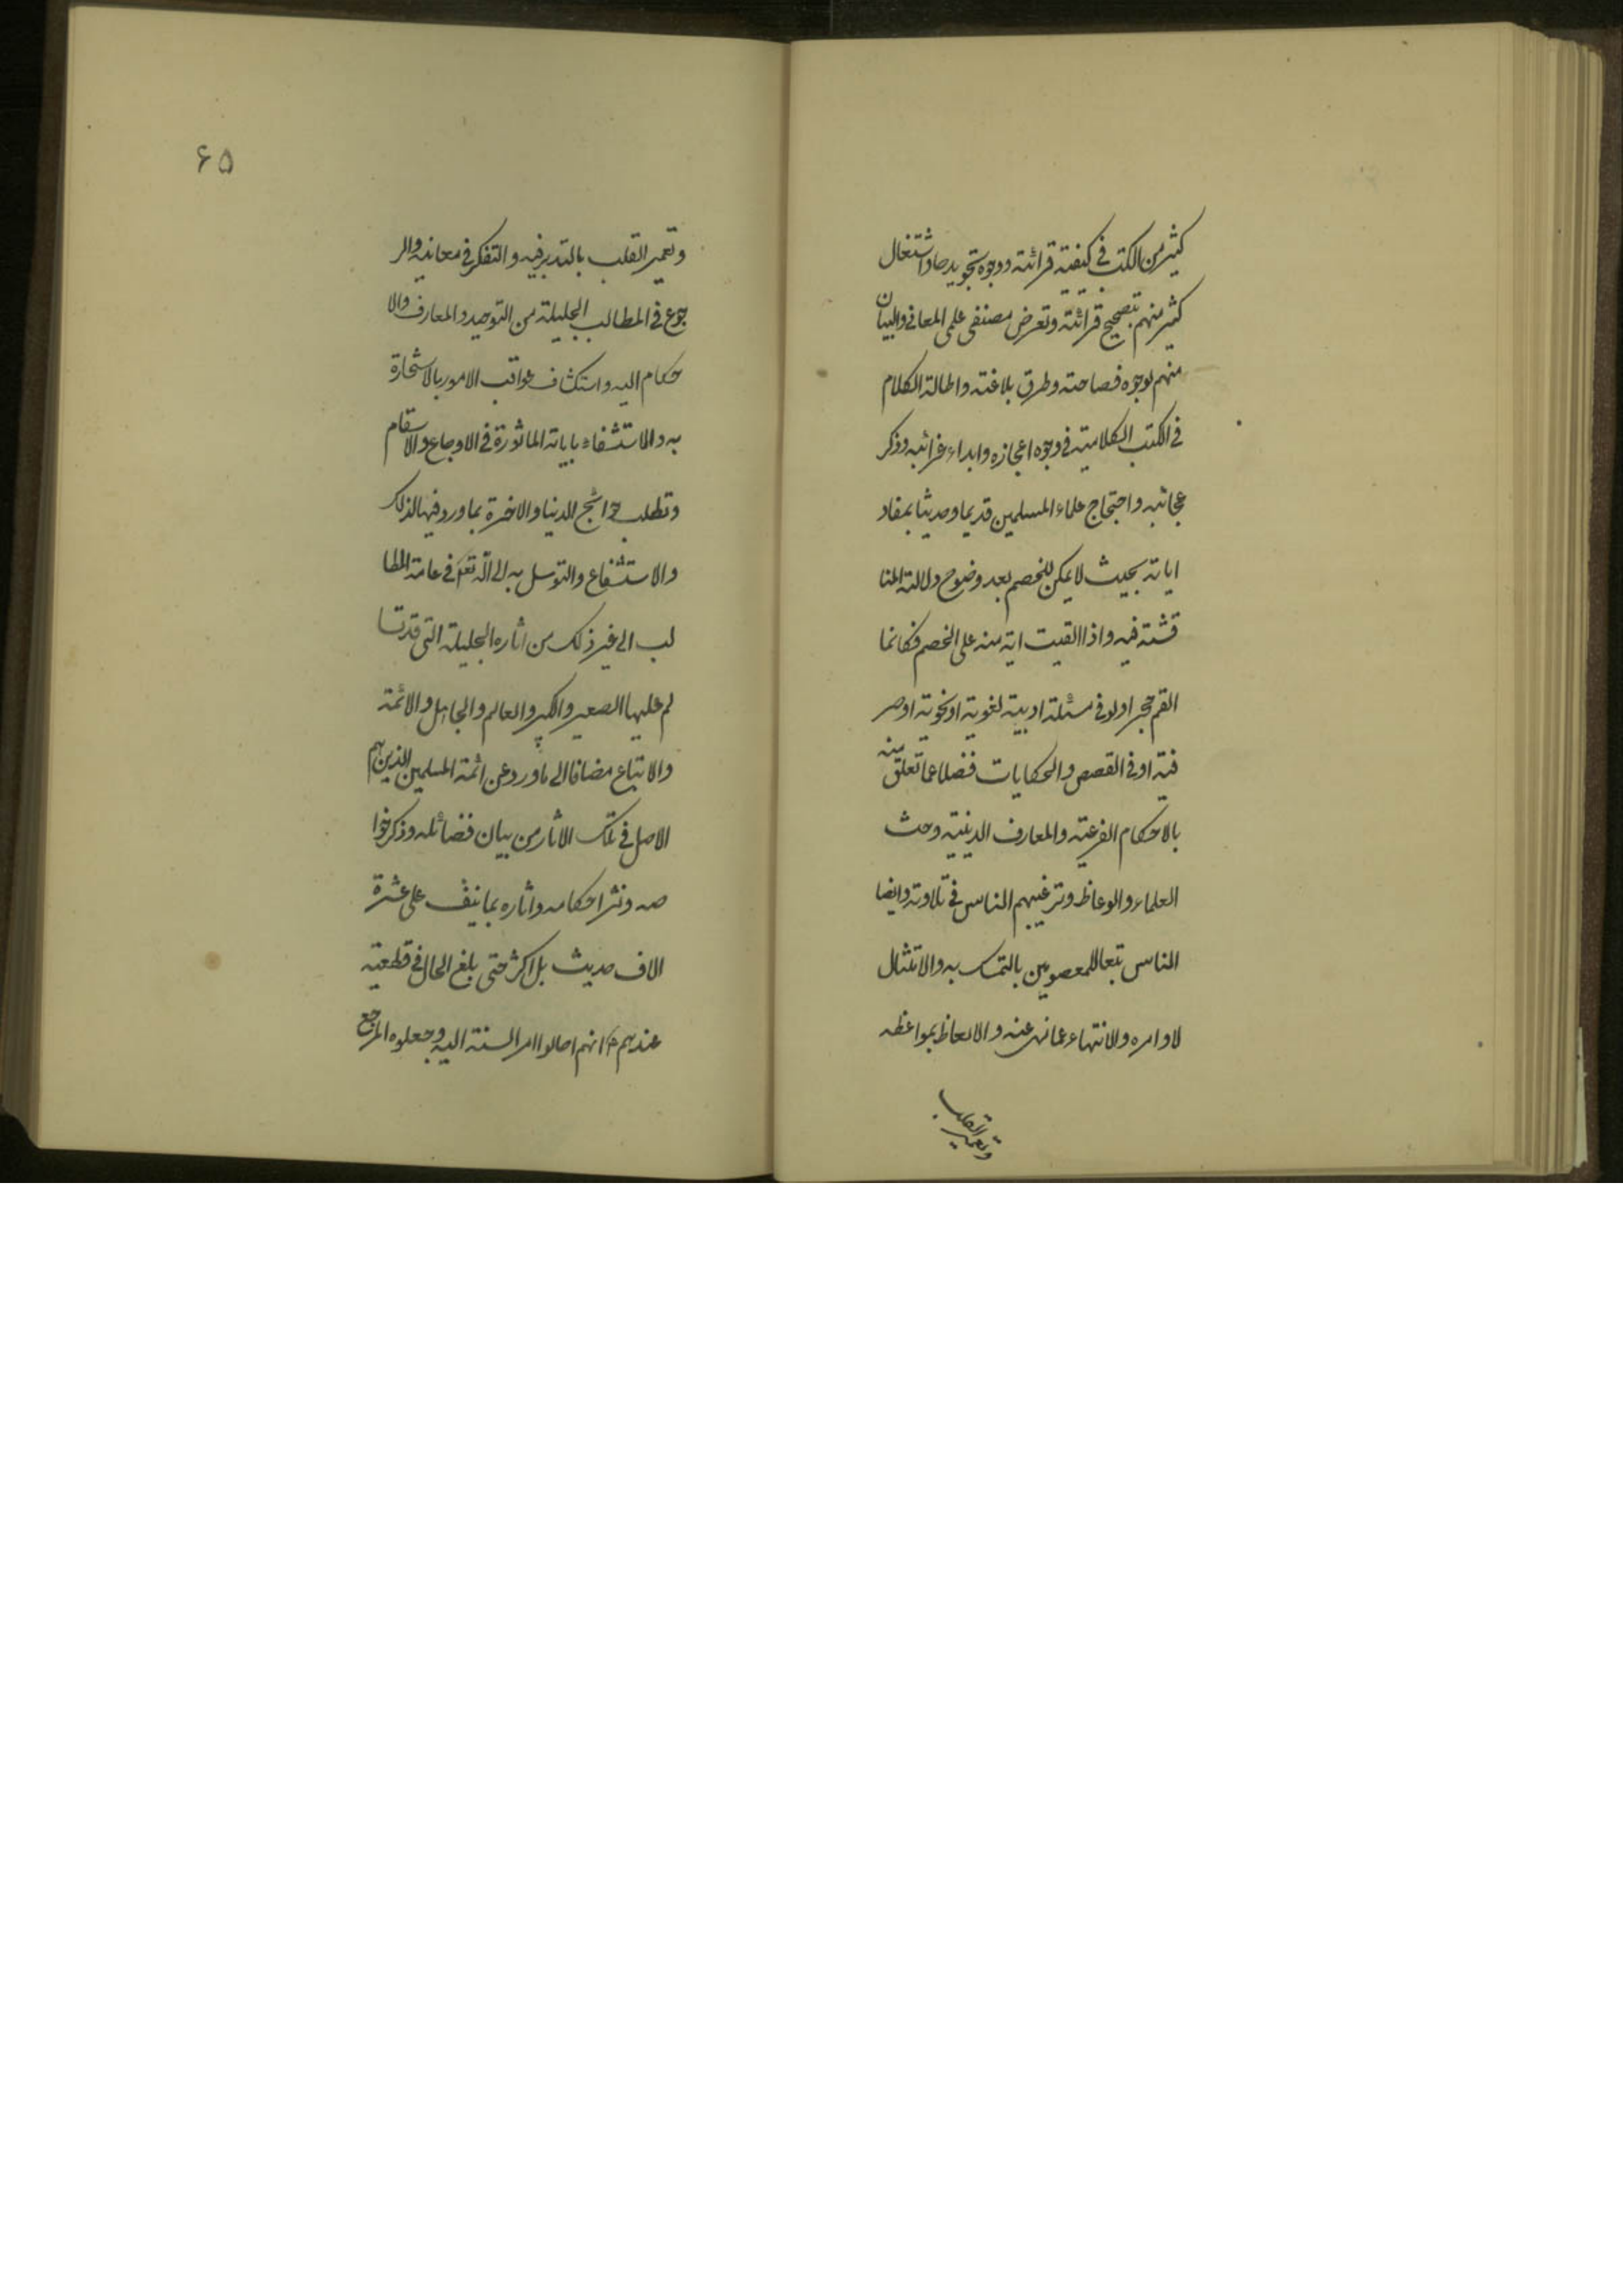 كثير من الكتب في كيفية قرائته ووجوه تجويدها واشتغال
كثير منهم بتصحيح قرائته وتعرض مصنفى علمى المعانى والبيان
منهم لوجوه فصاحته وطرق بلاغته واطالة الكلام
فى الكتب الكلامية فى وجوه اعجازه وابداء غرائبه وذكر
عجائبه واحتجاج علماء المسلمين قديما وحديثا بمفاد
اياته بحيث لا يمكن للخصم بعد وضوح دلالته المنا
قشته فيه واذا القيت اية منه على الخصم فكانما
القم حجرا ولو فى مسئلة ادبية لغوية او نحوية او صر
فية او فى القصص والحكايات فضلا عما تعلق منه
بالاحكام الفرعية والمعارف الدينية وحث
العلماء والوعاظ وترغيبهم الناس فى تلاوته وايضا
الناس تبعا للمعصومين بالتمسك به والامتثال
لاوامره والانتهاء عما نهى عنه والاتعاظ بمواعظه
وتعمير القلب
۶۵
وتعمير القلب بالتدبر فيه والتفكر فى معانيه والر
جوع فى المطالب الجليلة من التوحيد والمعارف والا
حكام اليه واستكشاف عواقب الامور بالاستخارة
به والاستشفاء باياته الماثورة فى الاوجاع والاسقام
وتطلب حوائج الدنيا والاخرة بما ورد فيها لذلك
والاستشفاع والتوسل به الى الله تعم فى عامة المطا
لب الى غير ذلك من اثاره الجليلة التى قد تسا
لم عليها الصغير والكبير والعالم والجاهل والائمة
والاتباع مضافا الى ما ورد عن ائمة المسلمين الذين هم
الاصل فى تلك الاثار من بيان فضائله وذكر خوا
صه ونشر احكامه واثاره بما ينيف على عشرة
الاف حديث بل اكثر حتى بلغ الحال فى قطعيته
عندهم انهم احالوا امر السنة اليه وجعلوه المرجع